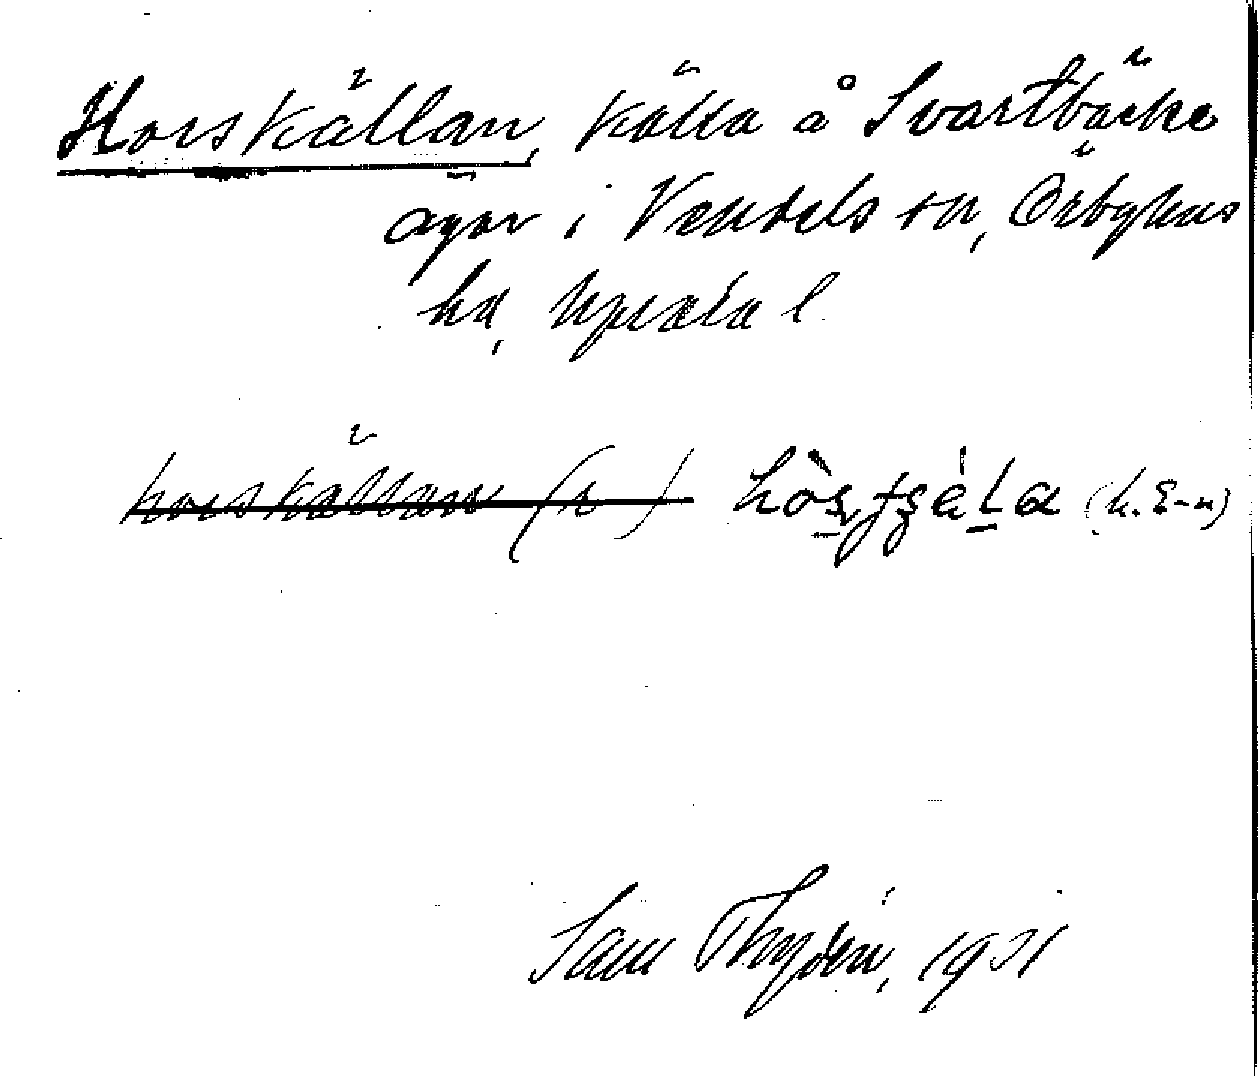 Horskällan, källa å Svartbäcks
ägor i Vendels sn, Örbyhus
hd, Upsala l
horskällan
Sam Thydén, 1931